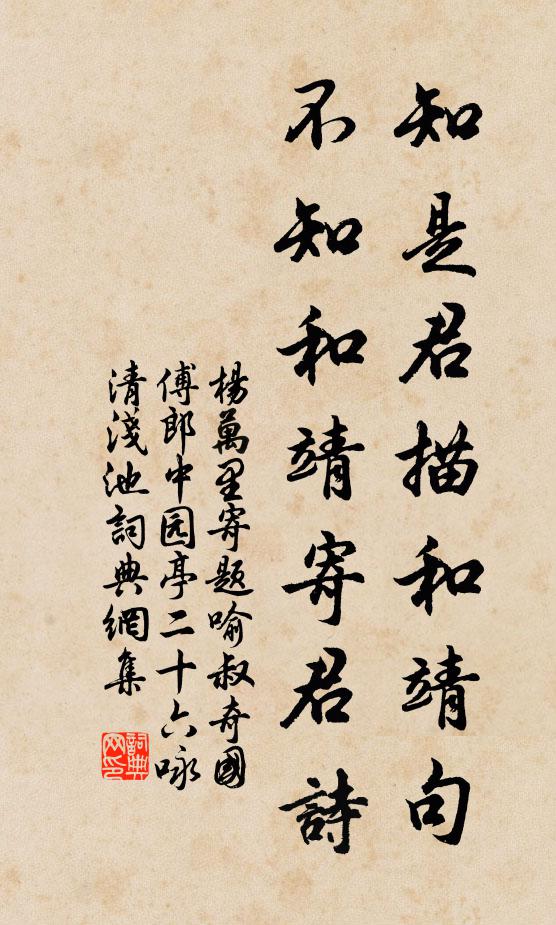 知是君描和靖句
不知和靖寄君詩
楊萬里寄題喻叔奇國
傅郎中园亭二十六咏
清淺池詞典網集
詞典网印